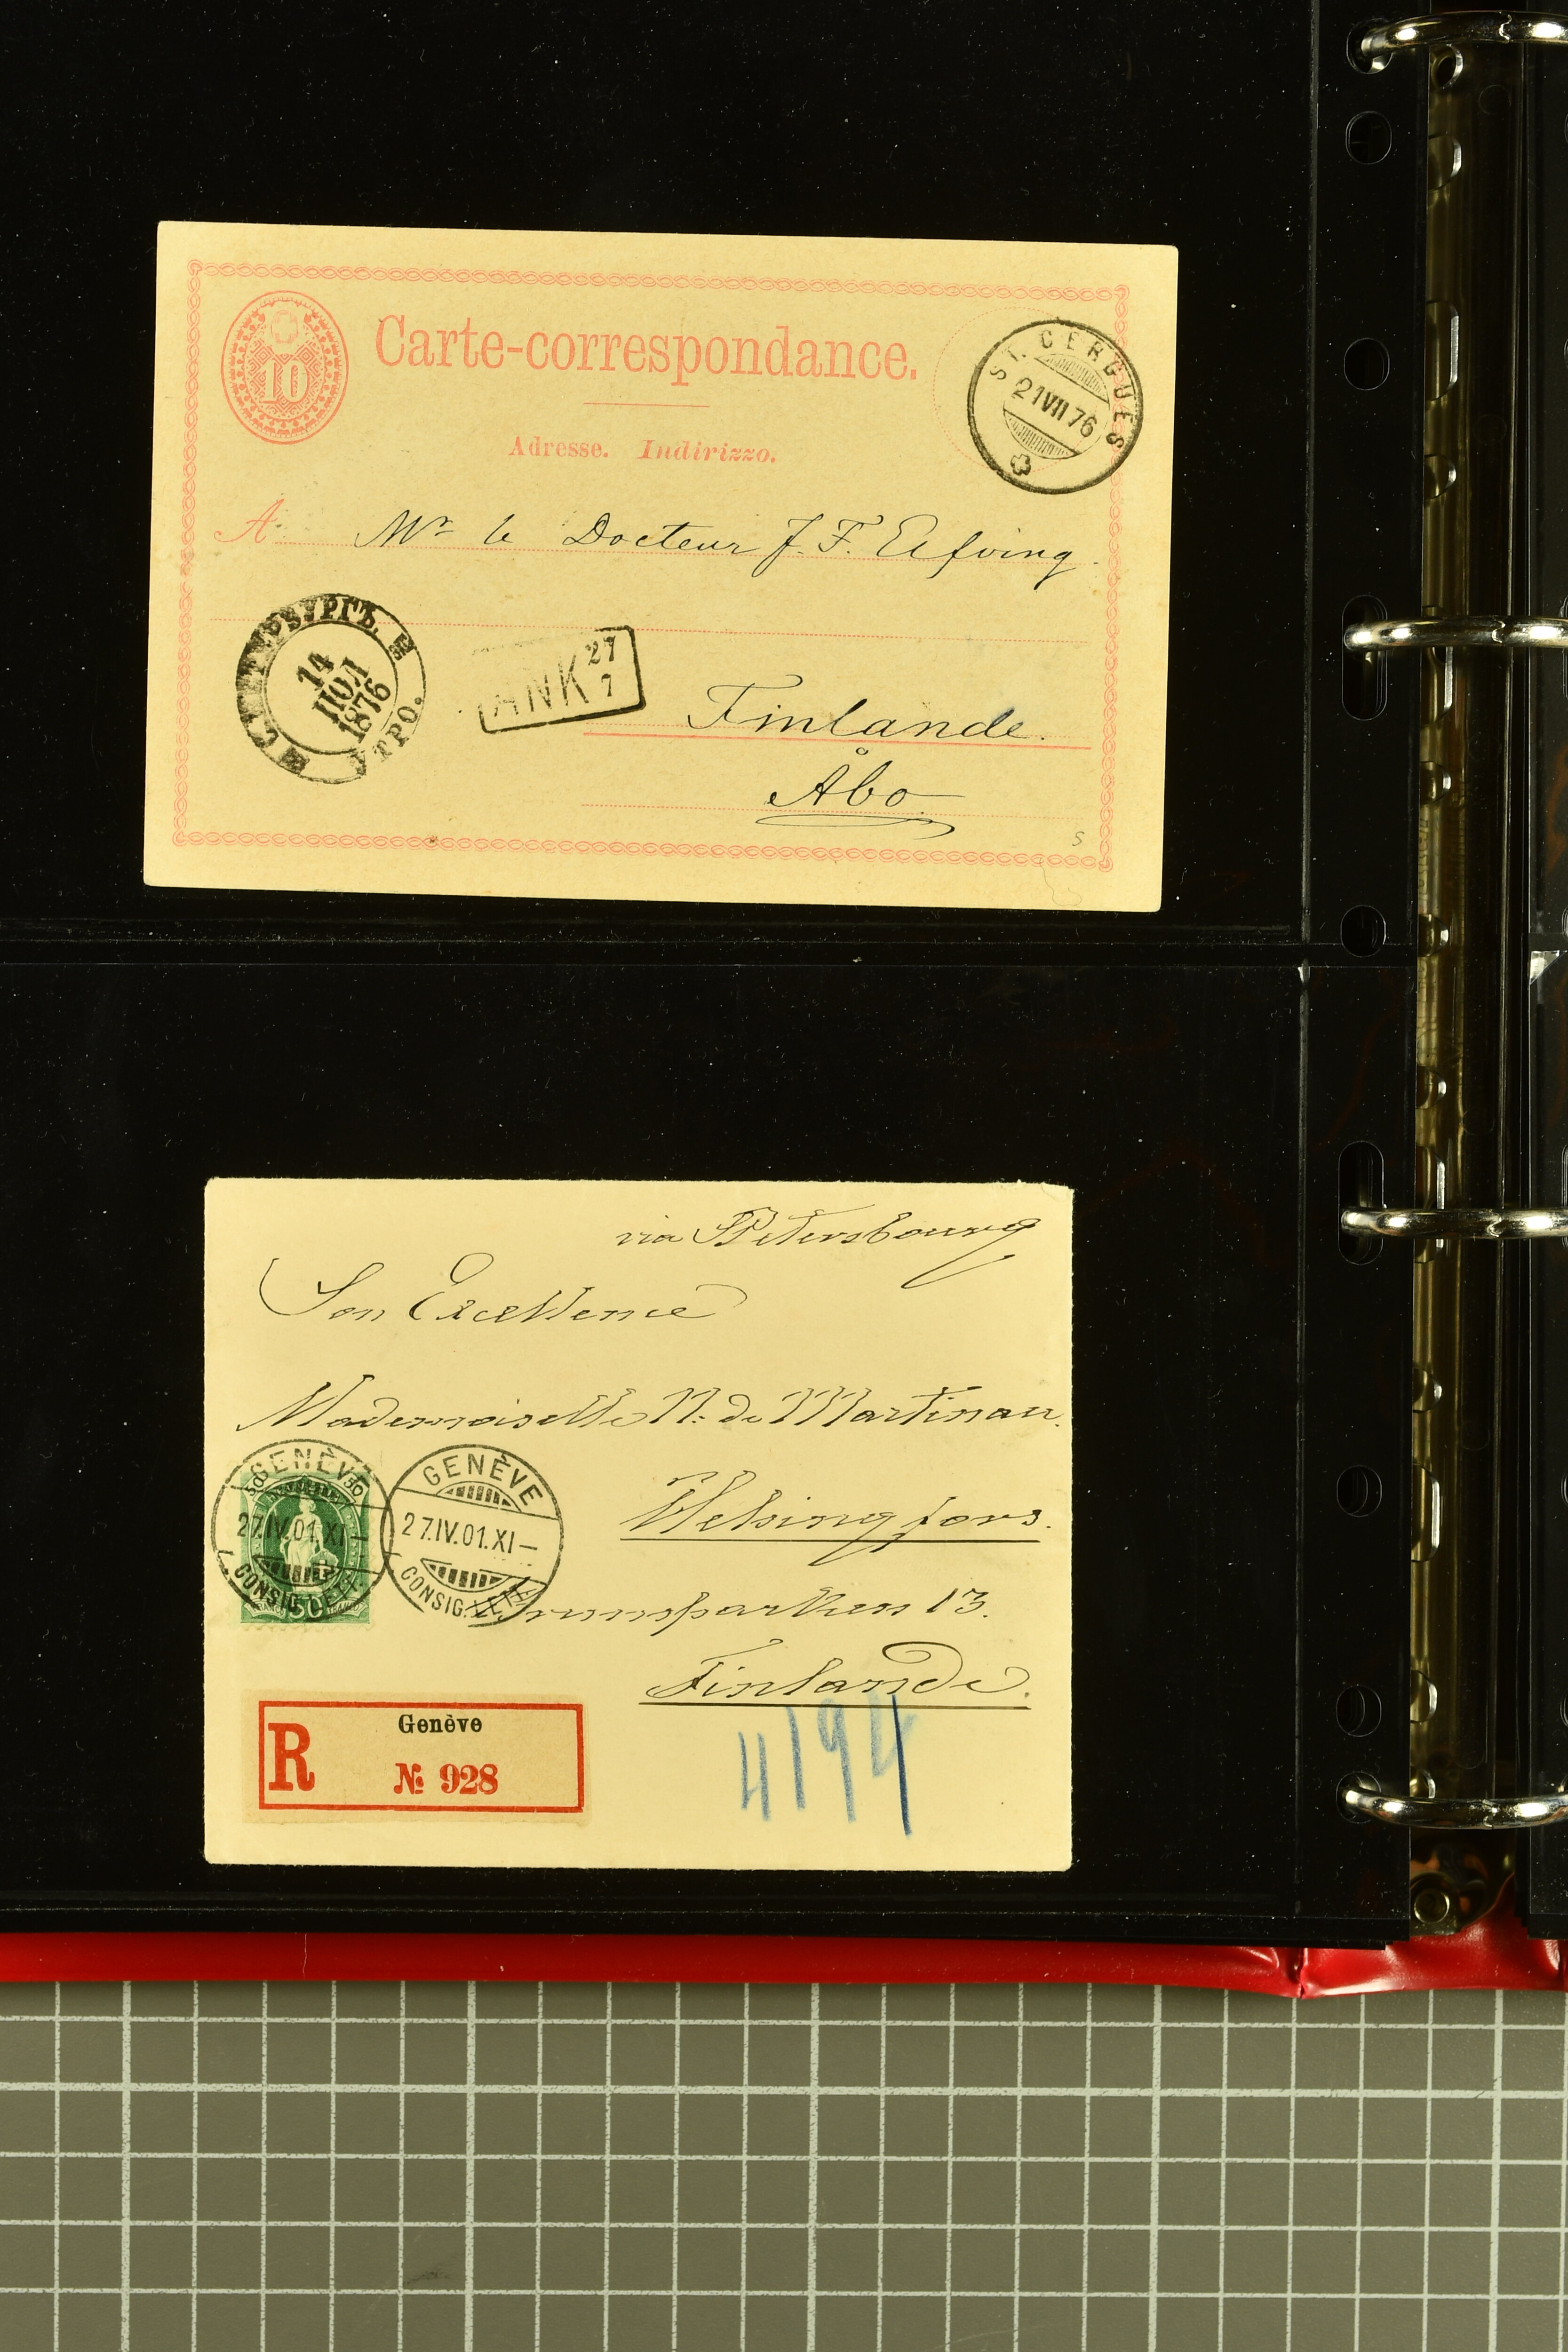 10
Carte-correspondance.
Adresse. Indirizzo.
ST. CERGUES
21 VII 76
A Mr le Docteur J. F. Elfving
С.ПЕТЕРБУРГЪ.
14
ІЮЛ
1876
УТРО.
ANK 27
7
Finlande.
Åbo
S
via St Petersbourg
Son Excellence
Mademoiselle N. de Martinau.
GENÈVE
27.IV.01.XI–
CONSIG. LETT.
50
50
50
GENÈVE
27.IV.01.XI–
CONSIG. LETT.
Helsingfors.
Brunnsparken 13.
Finlande.
R Genève
№ 928
4194